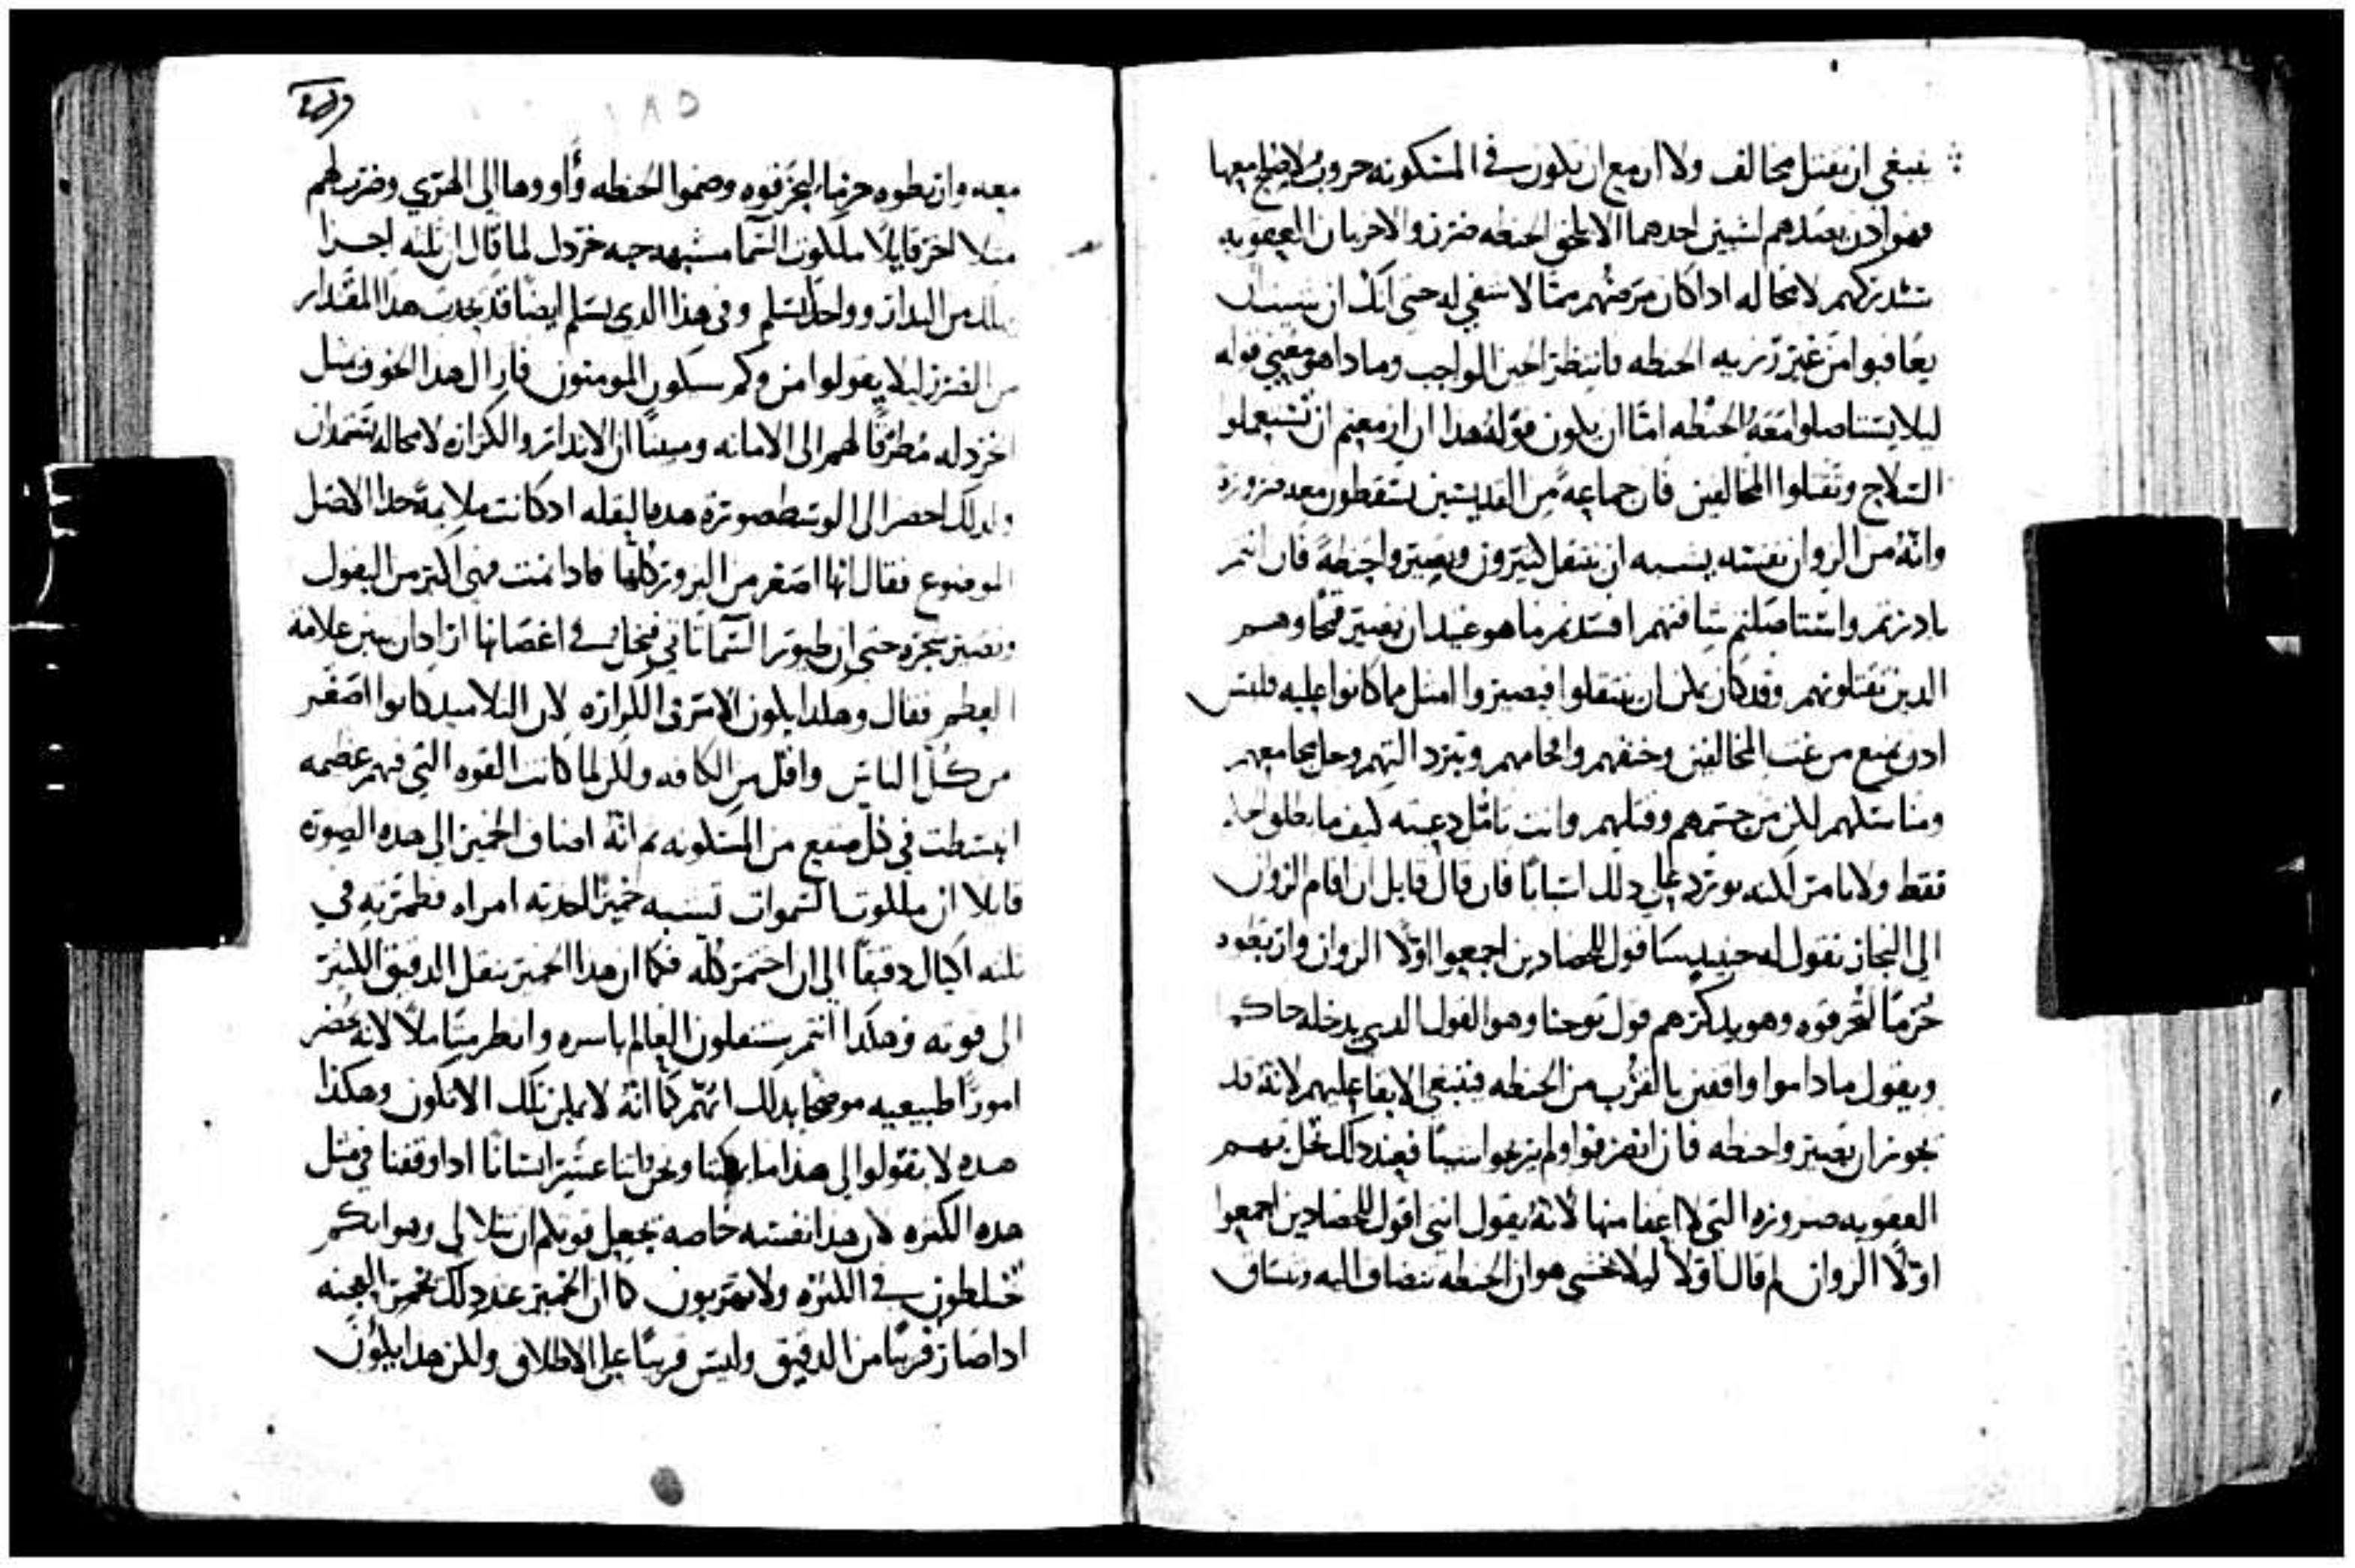 ينبغي ان يقتل مخالف ولا ان مع ان يكون في المسكونه حروب لا صلح معها
فهو اذن يصدهم لشيين احدهما الا يلحق الحنطه ضرر والاخر بان العقوبه
ستدركهم لا محاله اذا كان مرضهم مما لا شفي له حتى انك ان شيت ان
يعاقبوا من غير رزيه الحنطه فانتظر الحين الواجب وماذا هو معني قوله
ليلا يستاصلوا معه الحنطه امّا ان يكون قوله هذا ان ازمعتم ان تستعملوا
السلاح وتقتلوا المخالفين فان جماعه من القديسين يسقطون معه ضروره
وانه من الزوان نفسه يشبه ان ينتقل كثيرون ويصيروا حنطة فان انتم
بادرتم واستاصلتم شافتهم افسدتم ما هو عتيد ان يصير قمحا وهم
الدين تقتلونهم وقد كان يمكن ان ينتقلوا فيصيروا امثل مما كانوا عليه فليس
ادن يمنع من عنت المخالفين وخنقهم وافحامهم وتبرد التهم وحل مجامعهم
ومناسكهم لكن من حسمهم وقتلهم وانت تامّل دعته كيف ما يطلق الحكم
فقط ولا يامر لكنه يورد علي دلك اسبابًا فان قال قايل ان اقام الزوان
الي النجاز نقول له حينيد ساقول للحصادين اجمعوا اوّلا الزوان واربطوه
حزمًا لتحرقوه وهو يدكرهم قول يوحنا وهو القول الدي يدخله حاكما
ويقول ما داموا واقفين بالقرب من الحنطه فينبغي الابقا عليهم لانه قد
يجوز ان يصيروا حنطه فان انصرفوا ولم يربحوا شيئًا فعند دلك تحل بهم
العقوبه ضروره التي لا اعفا منها لانه يقول انني اقول للحصادين اجمعوا
اوّلا الزوان لم قال اوّلا ليلا نخشي هو ان الحنطه تنضاف اليه وتساق
معه واربطوه حزمًا ليحرقوه وضموا الحنطه وأووها الي الهري وضرب لهم
مثلا اخر قايلًا ملكوت السما مشبهه حبه خردل لما قال ان ثلثه اجزا
تهلك من البدار وواحد يسلم وفي هذا الدي يسلم ايضا قد يحدث هذا المقدار
من الضرر ليلا يقولوا من وكم سيكون المومنون فازال هدا الخوف بمثل
الخردله مطرّقًا لهم الي الامانه ومبينًا ان الاندار والكرازه لا محاله تمتدان
ولدلك احضر الي الوسط صورة هده البقله اد كانت ملايمة جدا لاصل
الموضوع فقال انها اصغر من البزور كلها فادا نمت فهي اكبر من البقول
وتصير شجرة حتي ان طيور السما تاتي فتحل في اغصانها اراد ان يبين علامة
العظم فقال وهكدا يكون الامر في الكرازه لان التلاميد كانوا اصغر
من كل الناس واقل من الكافه ولكن لما كانت القوه التي فيهم عظيمه
انبسطت في كل صقع من المسكونه ثم انه اضاف الخمير الي هده الصوره
قايلا ان ملكوت السموات تشبه خميرًا اخدته امراه فطمرته في
ثلثه اكيال دقيقًا الي ان اختمر كله فكما ان هدا الخمير ينقل الدقيق الكثير
الي قوته وهكدا انتم ستنقلون العالم باسره وانظر متاملًا لانه يحضر
امورًا طبيعيه موضحًا بدلك انهم كما انه لا يمكن تلك الا تكون وهكذا
هده لا تقولوا لي هذا ما يمكننا ونحن اثنا عشر انسانًا ادا وقعنا في مثل
هده الكثره لان هدا نفسه خاصه يجعل قوتكم ان تتلالي وهو انكم
تختلطون في الكثره ولا تهربون كما ان الخمير عند دلك يخمر العجنه
ادا صار قريبًا من الدقيق وليس قريبًا علي الاطلاق ولكن هدا يكون